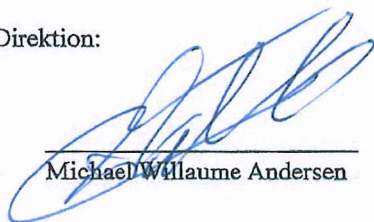 Direktion:
Michael Willaume Andersen